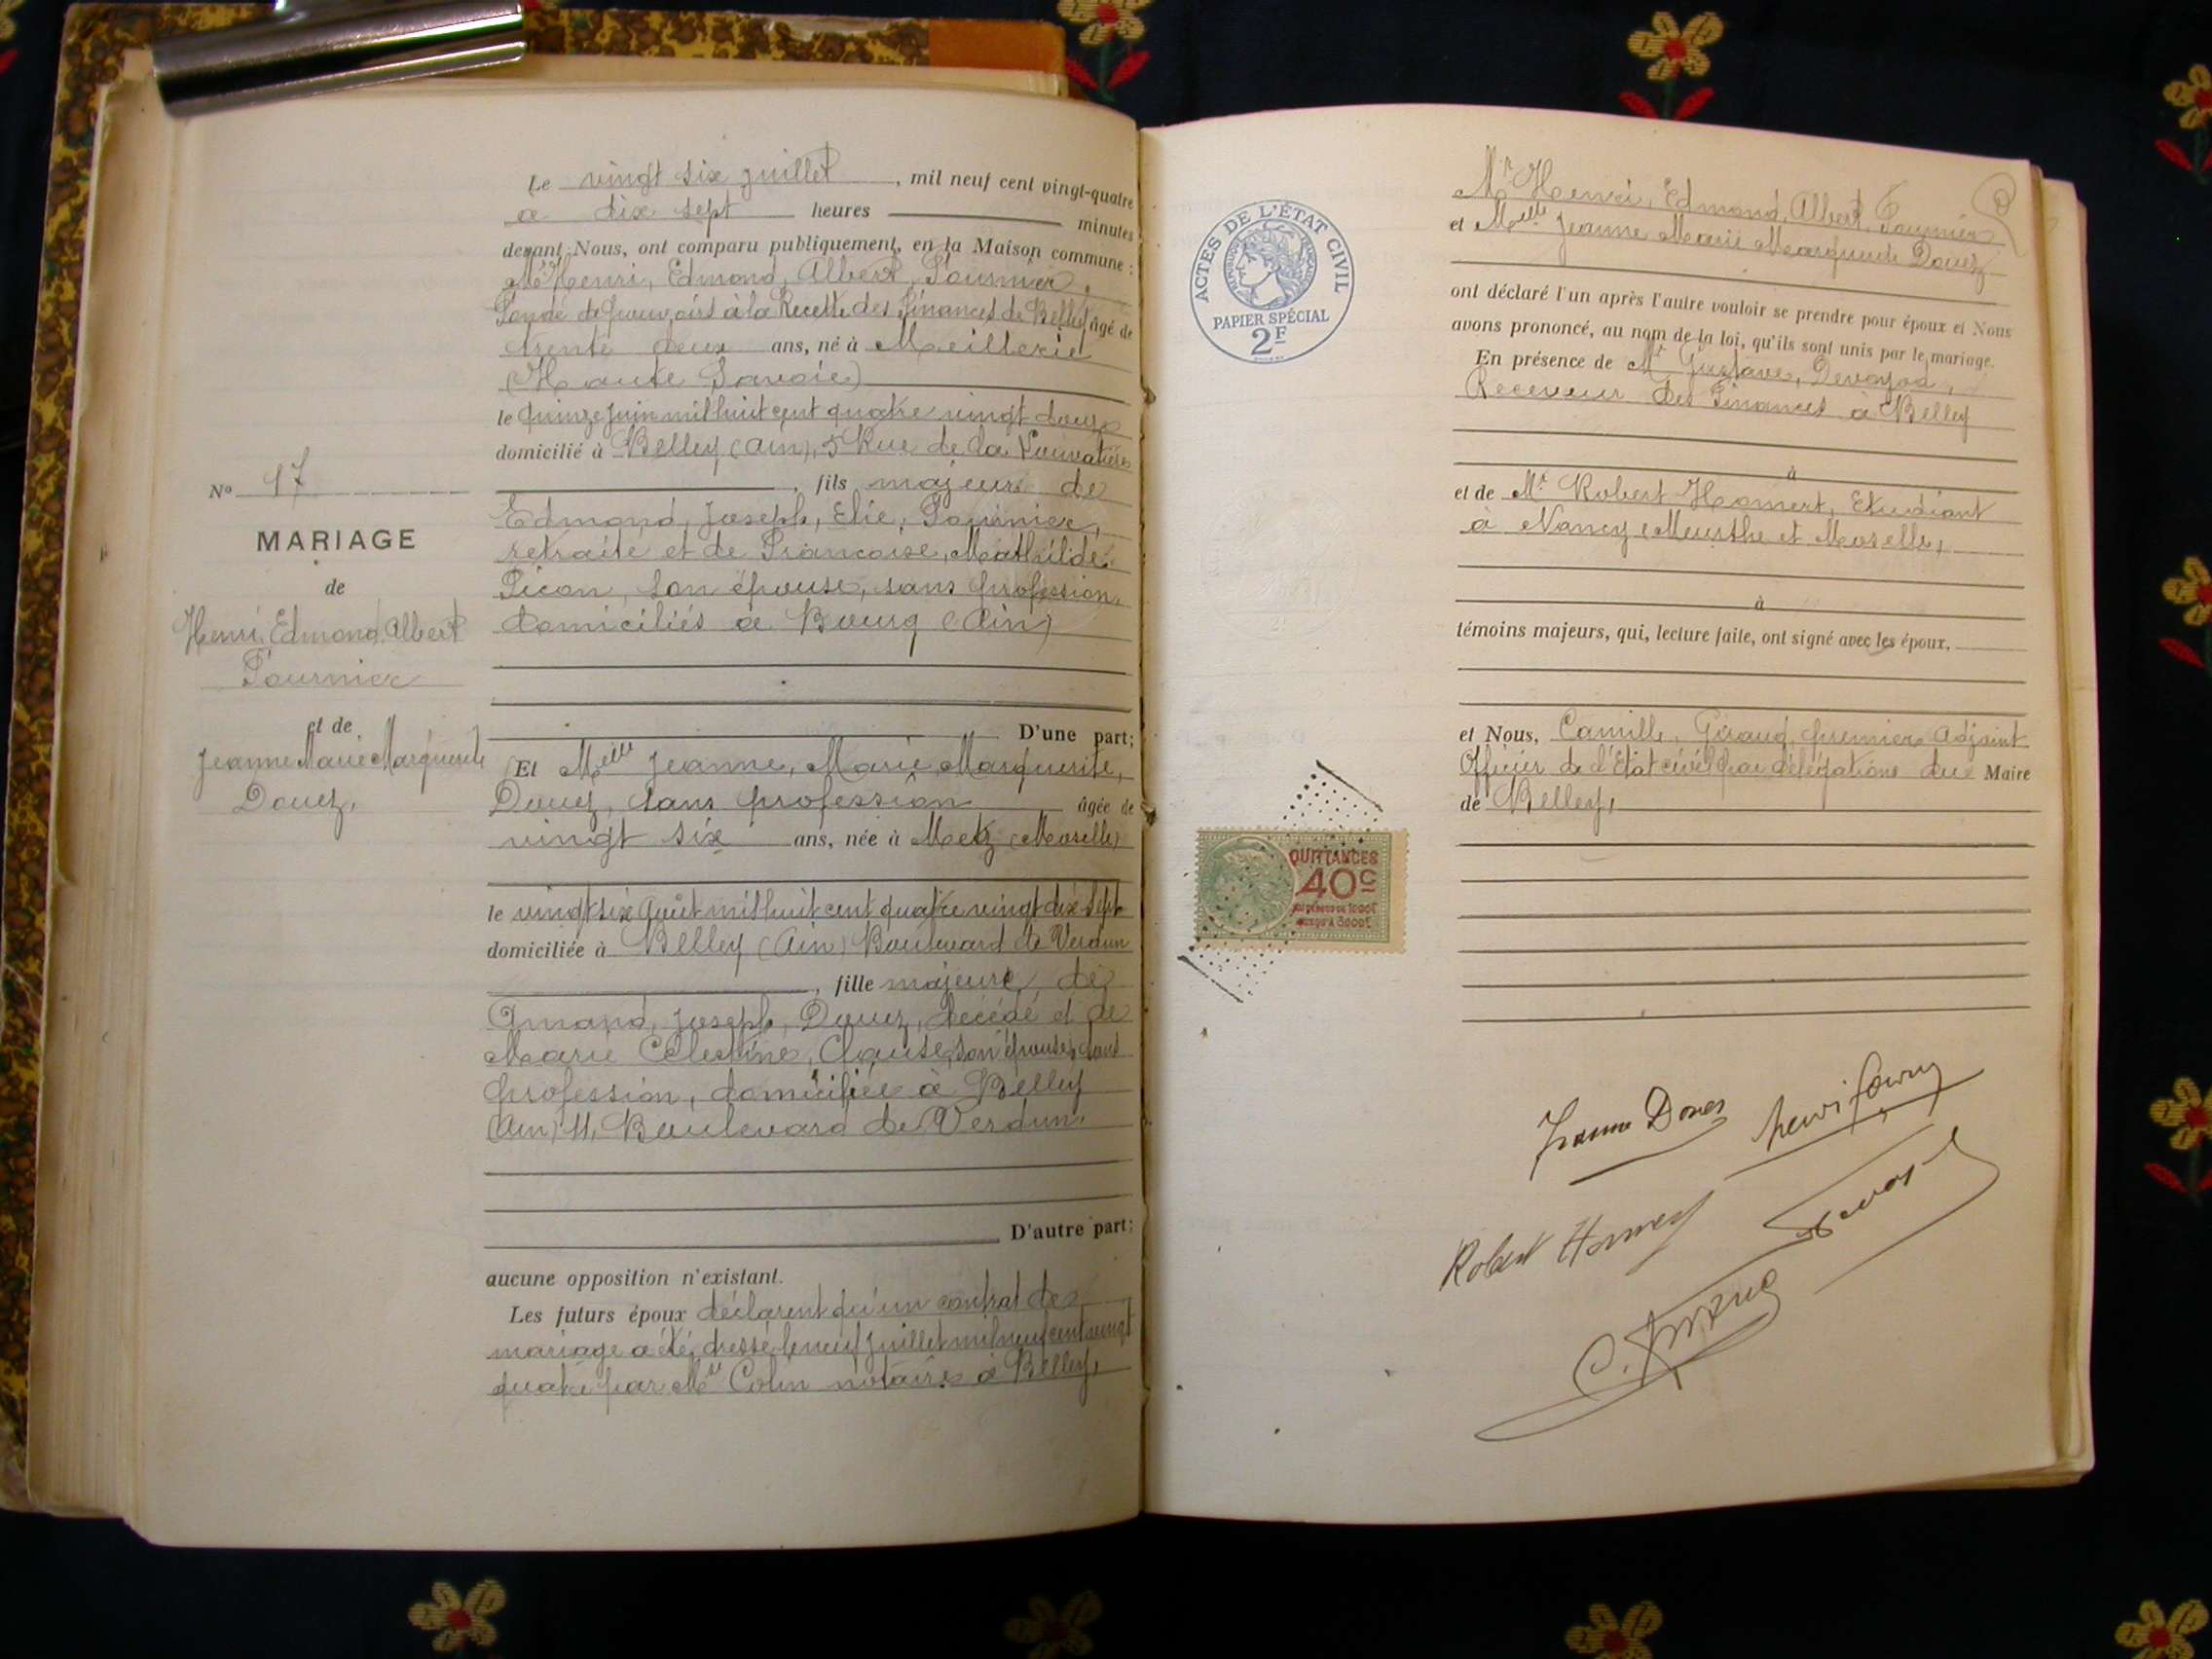 Le vingt six juillet, mil neuf cent vingt-quatre
à dix sept heures minutes
devant Nous, ont comparu publiquement, en la Maison commune :
Mr Henri, Edmond, Albert, Fournier,
Fondé de pouvoirs à la Recette des Finances de Belley âgé de
trente deux ans, né à Meillerie
(Haute Savoie)
le quinze juin mil huit cent quatre vingt douze
domicilié à Belley (Ain), 5 Rue de la
, fils majeur de
Edmond, Joseph, Elie, Fournier,
retraité et de Françoise, Mathilde
Picon, son épouse, sans profession,
domiciliés à Bourg (Ain)
D'une part;
Et Melle Jeanne, Marie, Marguerite,
Douez, sans profession âgée de
vingt six ans, née à Metz (Moselle)
le vingt six Août mil huit cent quatre vingt dix-sept
domiciliée à Belley (Ain) Boulevard de Verdun
, fille majeure de
Amand, Joseph, Douez, décédé et de
Marie Célestine, Clause, son épouse, sans
profession, domiciliée à Belley
(Ain) 11, Boulevard de Verdun.
D'autre part;
aucune opposition n'existant.
Les futurs époux déclarent qu'un contrat de
mariage a été dressé le neuf juillet mil neuf cent vingt
quatre par Me Colin notaire à Belley,
No 17
MARIAGE
de
Henri, Edmond, Albert
Fournier
et de
Jeanne Marie Marguerite
Douez,
ACTES DE L'ÉTAT CIVIL
RÉPUBLIQUE FRANÇAISE
PAPIER SPÉCIAL
2F
QUITTANCES
40c
AU DESSUS DE 1000F
JUSQU'À 3000F
Mr Henri, Edmond, Albert, Fournier
et Melle Jeanne Marie Marguerite Douez
ont déclaré l'un après l'autre vouloir se prendre pour époux et Nous
avons prononcé, au nom de la loi, qu'ils sont unis par le mariage.
En présence de Mr Gustave, Devoyod,
Receveur des Finances à Belley
à
et de Mr Robert Homert, Etudiant
à Nancy (Meurthe et Moselle)
à
témoins majeurs, qui, lecture faite, ont signé avec les époux,
et Nous, Camille, Giraud, premier adjoint
Officier de l'Etat civil par délégation du Maire
de Belley,
Jeanne Douez
henri fourny
Robert Homert
C.